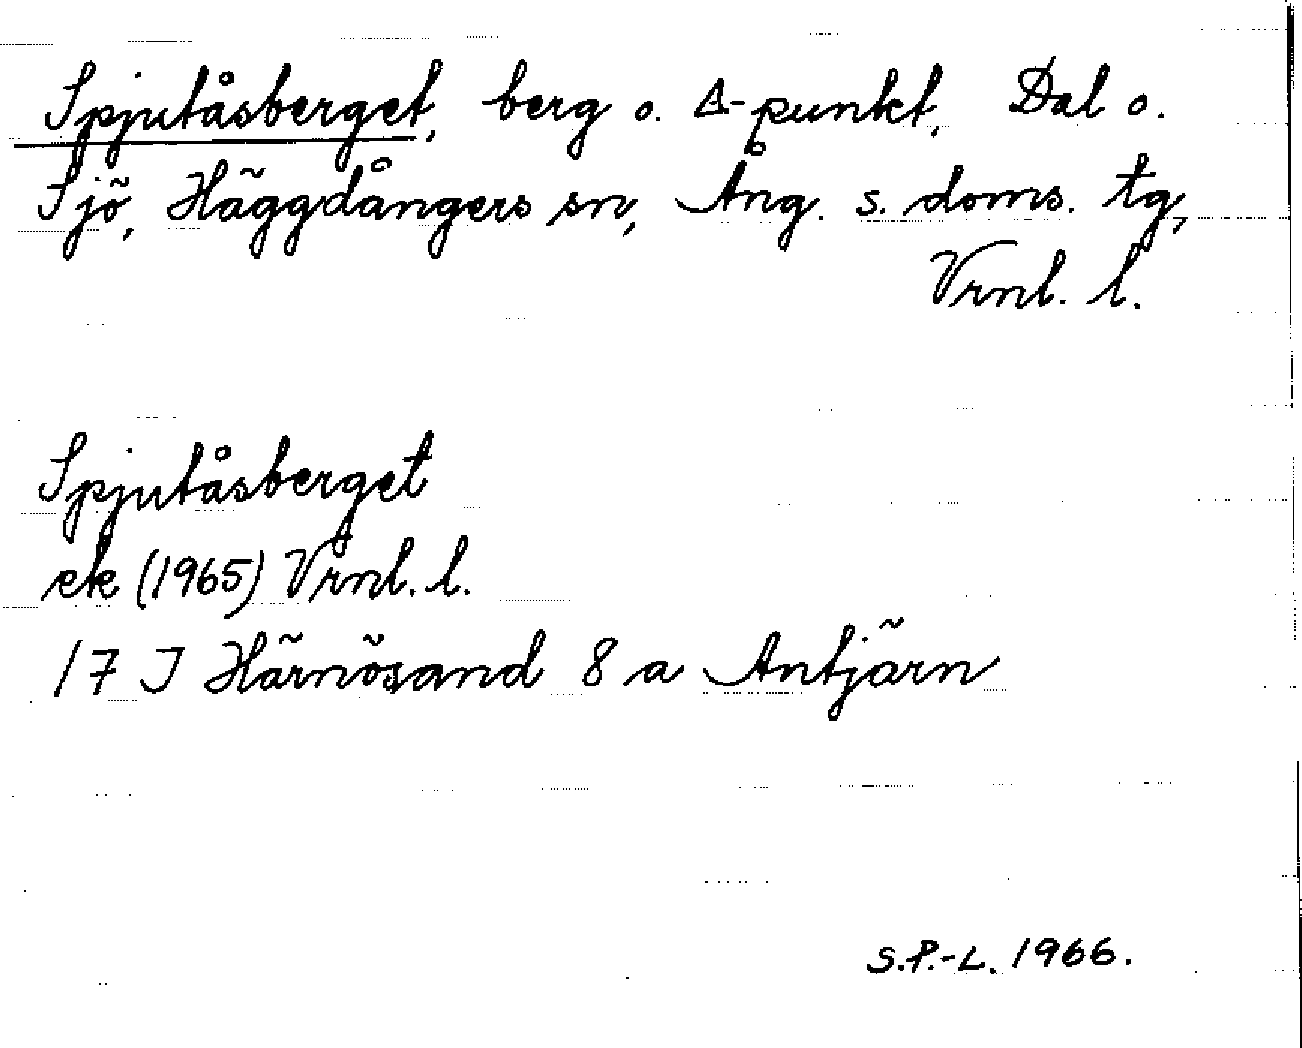 Spjutåsberget, berg o. Δ-punkt, Dal o.
Sjö, Häggdångers sn, Ång. s. doms. tg,
Vrnl. l.
Spjutåsberget
ek (1965) Vrnl. l.
17 J Härnösand 8 a Antjärn
S.P.-L. 1966.